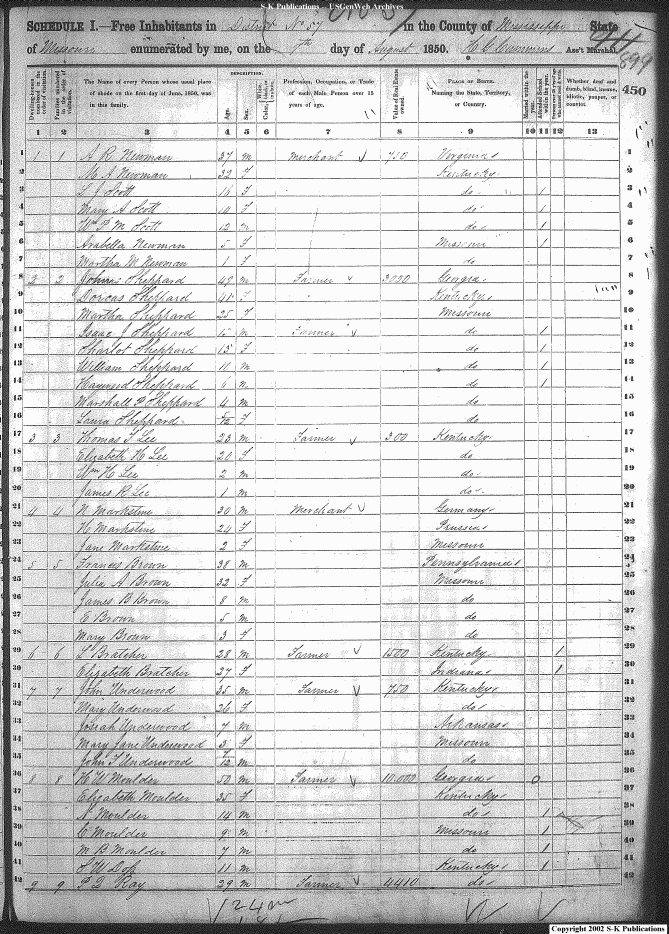 S-K Publications - USGenWeb Archives
SCHEDULE I.—Free Inhabitants in District No 57 in the County of Mississippi State
of Missouri enumerated by me, on the 7th day of August 1850. Ass't Marshal.
899
450
Dwelling-houses numbered in the order of visitation.
Families numbered in the order of visitation.
The Name of every Person whose usual place of abode on the first day of June, 1850, was in this family.
DESCRIPTION.
Age.
Sex.
Profession, Occupation, or Trade of each Male Person over 15 years of age.
Value of Real Estate owned.
PLACE OF BIRTH. Naming the State, Territory, or Country.
Married within the year.
Attended School within the year.
Whether deaf and dumb, blind, insane, idiotic, pauper, or convict.
1 2 3 4 5 6 7 8 9 10 11 12 13
1 1 1 A R Newman 37 m Merchant Virginia 1
2 M A Newman 32 f Kentucky 2
3 L J Scott 16 f do 1 3
4 Mary A Scott 14 f do 1 4
5 Wm P M Scott 12 m do 1 5
6 Arabella Newman 5 f Missouri 1 6
7 Martha M Newman 1 f do 7
8 2 2 Sheppard 49 m Farmer 3000 Georgia 8
9 Dorcas Sheppard 41 f Kentucky 9
10 Martha Sheppard 25 f Missouri 10
11 Isaac J Sheppard m Farmer do 1 11
12 Sharlot Sheppard 13 f do 1 12
13 William Sheppard 11 m do 1 13
14 Haywood Sheppard 6 m do 1 14
15 Marshall P Sheppard 4 m do 15
16 Laura Sheppard /12 f do 16
17 3 3 Thomas T Lee 23 m Farmer 300 Kentucky 17
18 Elizabeth H Lee 20 f do 18
19 Wm H Lee 2 m do 19
20 James R Lee 1 m do 20
21 4 4 N Markstine 30 m Merchant Germany 21
22 H Markstine 24 f Prussia 22
23 Jane Markstine 2 f Missouri 23
24 5 5 Frances Brown 38 m Pennsylvania 24
25 Julia A Brown 32 f Missouri 25
26 James B Brown 8 m do 26
27 E Brown 5 m do 27
28 Mary Brown 3 f do 28
29 6 6 L Bratcher 28 m Farmer 1500 Kentucky 1 29
30 Elizabeth Bratcher 27 f Indiana 1 30
31 7 7 John Underwood 35 m Farmer 750 Kentucky 31
32 Mary Underwood 26 f do 32
33 Josiah Underwood 7 m Arkansas 33
34 Mary Jane Underwood 3 f Missouri 34
35 John T Underwood /12 m do 35
36 8 8 H W Moulder 50 m Farmer 10,000 Georgia 36
37 Elizabeth Moulder 35 f Kentucky 37
38 A Moulder 14 m do 1 38
39 C Moulder 9 m Missouri 1 39
40 M B Moulder 7 m do 1 40
41 11 m Kentucky 1 41
42 9 9 P D Ray 29 m Farmer 4410 do 42
Copyright 2002 S-K Publications